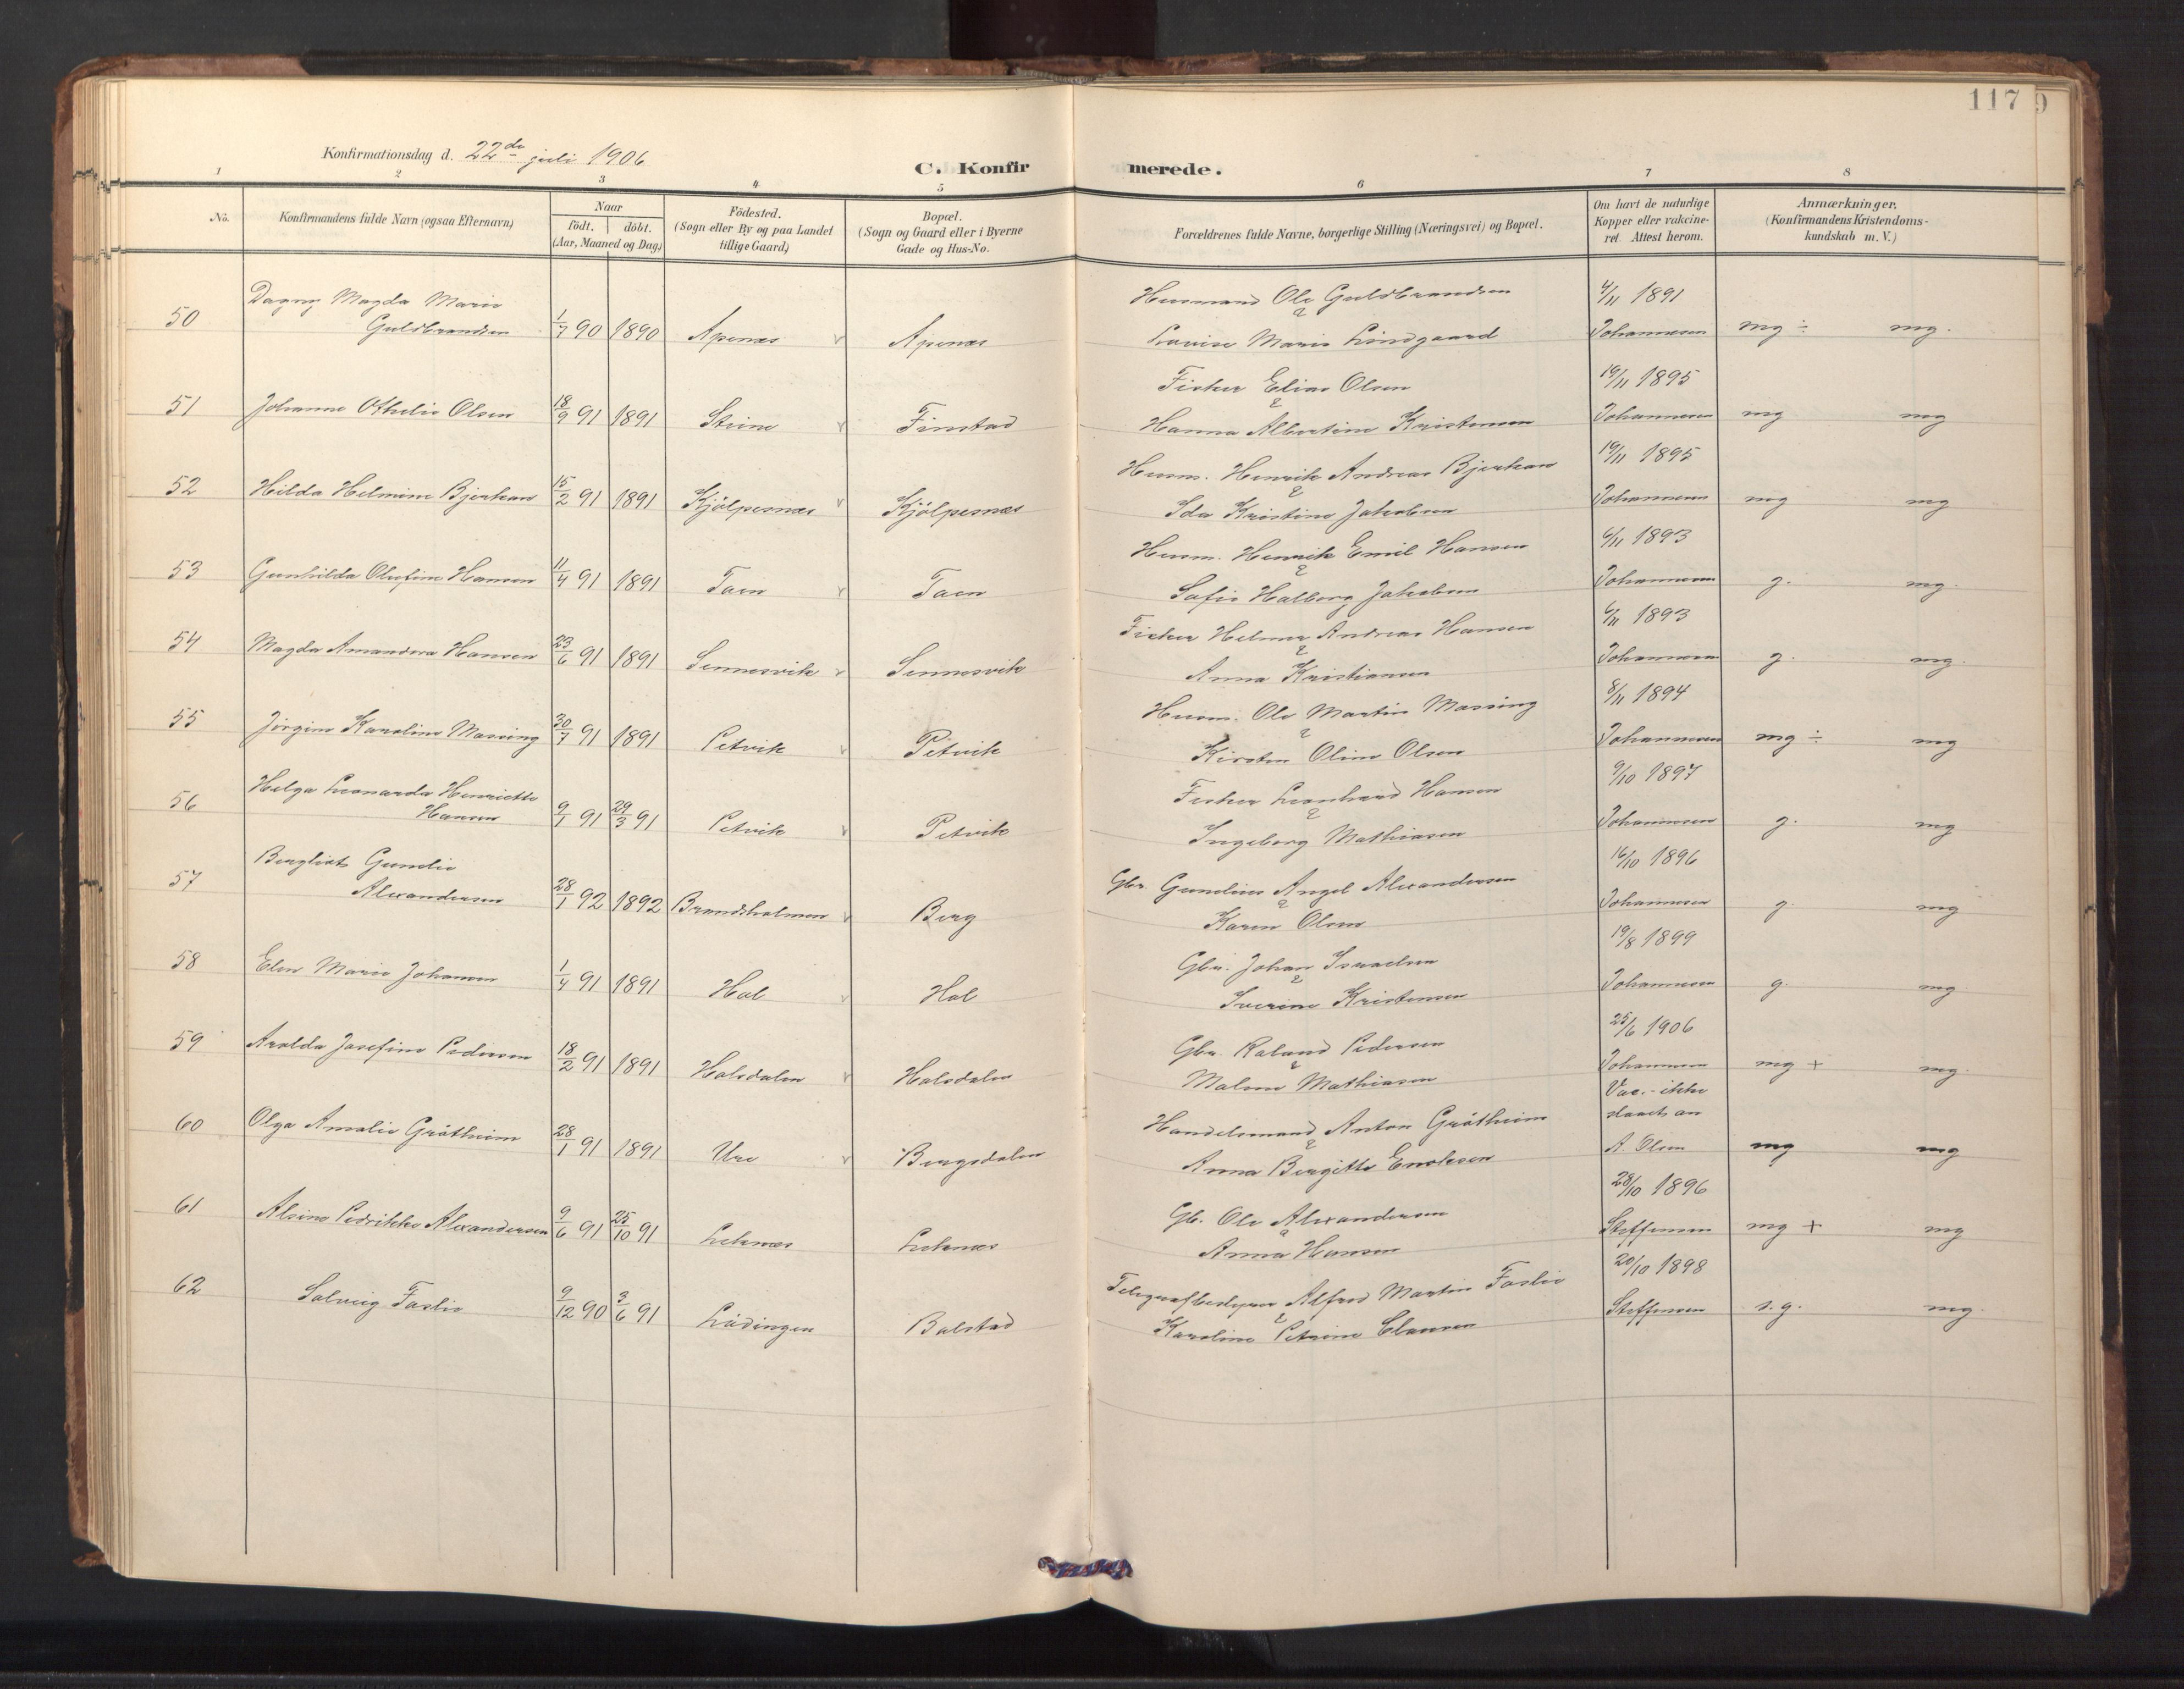 117
Konfirmationsdag d. 22de juli 1906
C. Konfirmerede.
1 2 3 4 5 6 7 8
No. Konfirmandens fulde Navn (ogsaa Efternavn) Naar födt. döbt. (Aar, Maaned og Dag) Födested. (Sogn eller By og paa Landet tillige Gaard) Bopæl. (Sogn og Gaard eller i Byerne Gade og Hus-No. Forældrenes fulde Navne, borgerlige Stilling (Næringsvei) og Bopæl. Om havt de naturlige Kopper eller vakcineret. Attest herom. Anmærkninger. (Konfirmandens Kristendomskundskab m. V.)
Dagny Magda Marie Husmand Ole Guldbrandsen 4/11 1891
50 Guldbrandsen 1/7 90 1890 Apenæs v Apenæs & Lovise Marie Lindgaard Johannesen mg ÷ mg.
Fisker Elias Olsen 19/11 1895
51 Johanne Othelie Olsen 18/9 91 1891 Stene v Finstad & Hanna Albertine Kristensen Johannesen mg mg
Husm. Henrik Andreas Bjerkan 19/11 1895
52 Hilda Helmine Bjerkan 15/2 91 1891 Kjölpesnæs v Kjölpesnæs & Ida Kristine Jakobsen Johannesen mg mg
Husm. Henrik Emil Hansen 6/11 1893
53 Gunhilda Olufine Hansen 11/4 91 1891 Taen v Taen & Sofie Halborg Jakobsen Johannesen g. mg.
Fisker Helmer Andreas Hansen 6/11 1893
54 Magda Amandera Hansen 23/6 91 1891 Sennesvik v Sennesvik & Anna Kristiansen Johannesen g. mg.
Husm. Ole Martin Massing 8/11 1894
55 Jörgine Karoline Massing 30/7 91 1891 Petvik v Petvik & Kirsten Oline Olsen Johannesen mg ÷ mg
Helga Leonarda Henriette Fisker Leonhard Hansen 9/10 1897
56 Hansen 9/1 91 29/3 91 Petvik v Petvik & Ingeborg Mathiasen Johannesen g. mg
Bergliot Gunelie Gbr. Gunelius Angel Alexandersen 16/10 1896
57 Alexandersen 28/1 92 1892 Brandsholmen v Berg & Karen Olsen Johannesen g. mg
Gbr. Johan Israelsen 19/8 1899
58 Elen Marie Johansen 1/4 91 1891 Hol v Hol & Iverine Kristensen Johannesen g. mg
Gbr. Roland Pedersen 25/6 1906
59 Arolda Josefine Pedersen 18/2 91 1891 Halsdalen v Halsdalen & Malene Mathiasen Johannesen mg + mg.
Handelsmand Anton Gröttheim Vac. ikke slaaet an
60 Olga Amalie Gröttheim 28/1 91 1891 Ure v Bergsdalen & Anna Bergitte Enoksen A Olsen mg mg
Gb. Ole Alexandersen 28/10 1896
61 Alsine Pedrikke Alexandersen 9/6 91 25/10 91 Leknæs Leknæs & Anna Hansen Steffensen mg + mg
Telegrafbestyrer Alfred Martin Foslie 20/10 1898
62 Solveig Foslie 9/12 90 3/6 91 Lödingen Balstad & Karoline Petrine Clausen Steffensen s. g. mg.